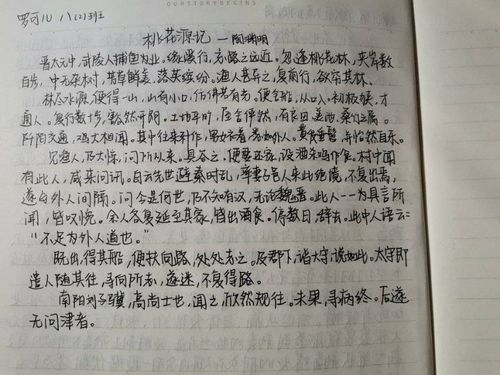 OUR STORY BEGINS
罗可儿 八(2)班
桃花源记 —陶渊明
晋太元中,武陵人捕鱼为业,缘溪行,忘路之远近。忽逢桃花林,夹岸数
百步,中无杂树,芳草鲜美,落英缤纷。渔人甚异之,复前行,欲穷其林。
林尽水源,便得一山,山有小口,仿佛若有光。便舍船,从口入。初极狭,才
通人。复行数十步,豁然开朗。土地平旷,屋舍俨然,有良田美池桑竹之属。
阡陌交通,鸡犬相闻。其中往来种作,男女衣着,悉如外人。黄发垂髫,并怡然自乐。
见渔人,乃大惊,问所从来。具答之。便要还家,设酒杀鸡作食。村中闻
有此人,咸来问讯。自云先世避秦时乱,率妻子邑人来此绝境,不复出焉,
遂与外人间隔。问今是何世,乃不知有汉,无论魏晋。此人一一为具言所
闻,皆叹惋。余人各复延至其家,皆出酒食。停数日,辞去。此中人语云:
“不足为外人道也。”
既出,得其船,便扶向路,处处志之。及郡下,诣太守,说如此。太守即
遣人随其往,寻向所志,遂迷,不复得路。
南阳刘子骥,高尚士也,闻之,欣然规往。未果,寻病终。后遂
无问津者。